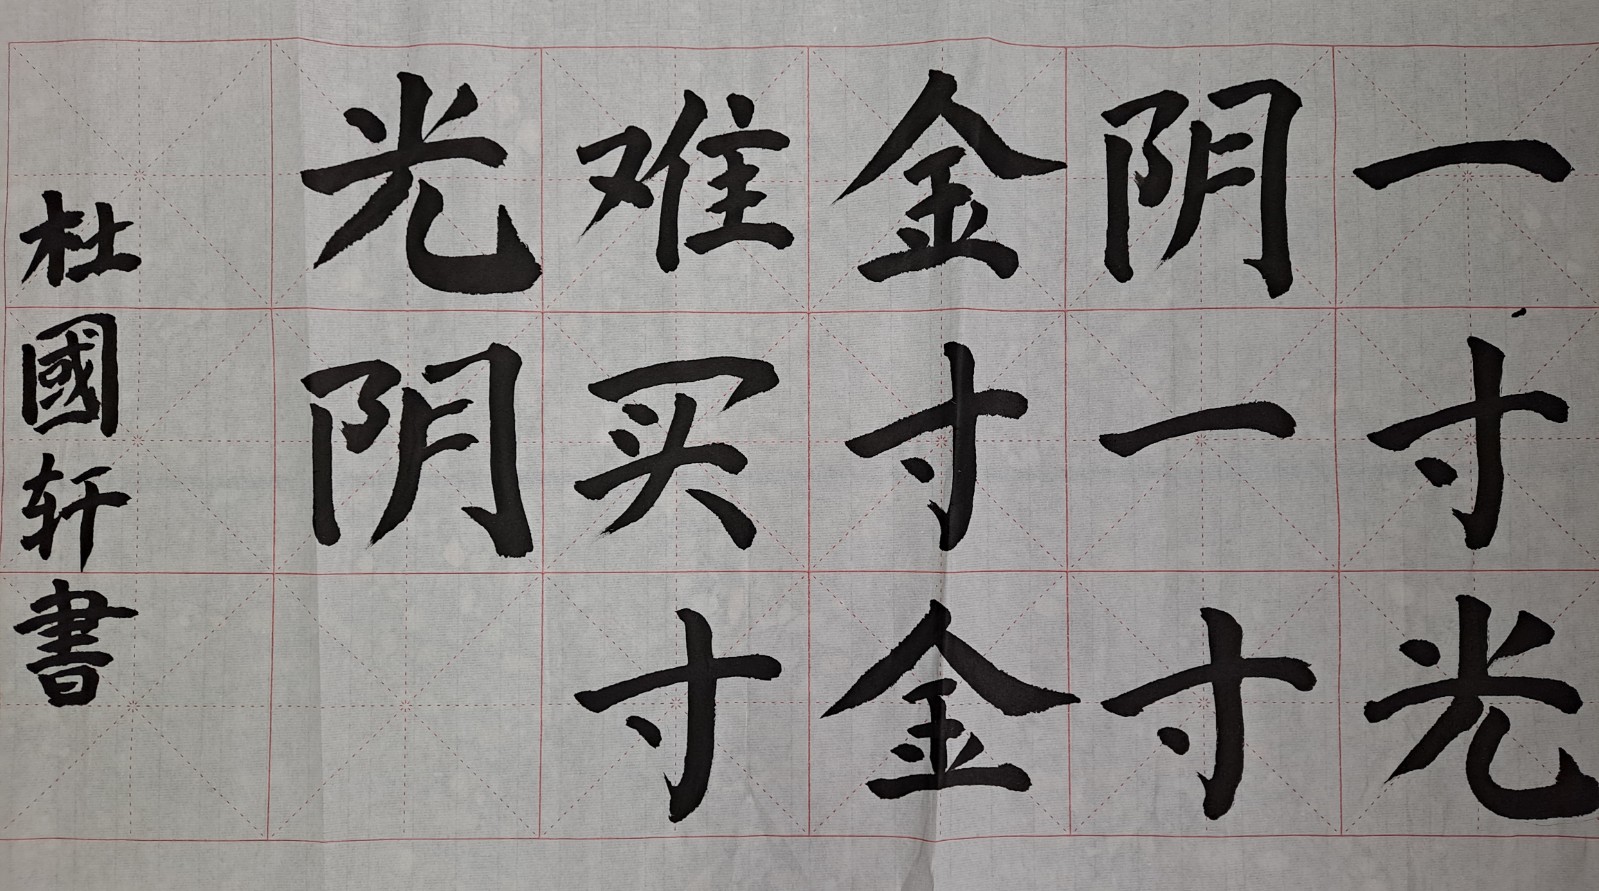 一寸光
阴一寸
金寸金
难买寸
光阴
杜國轩書